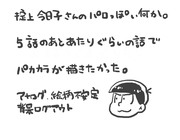 掟上今日子さんのパロっぽい何か。
5話のあとあたりぐらいの話で
パカカラが描きたかった。
アナログ、絵柄不安定